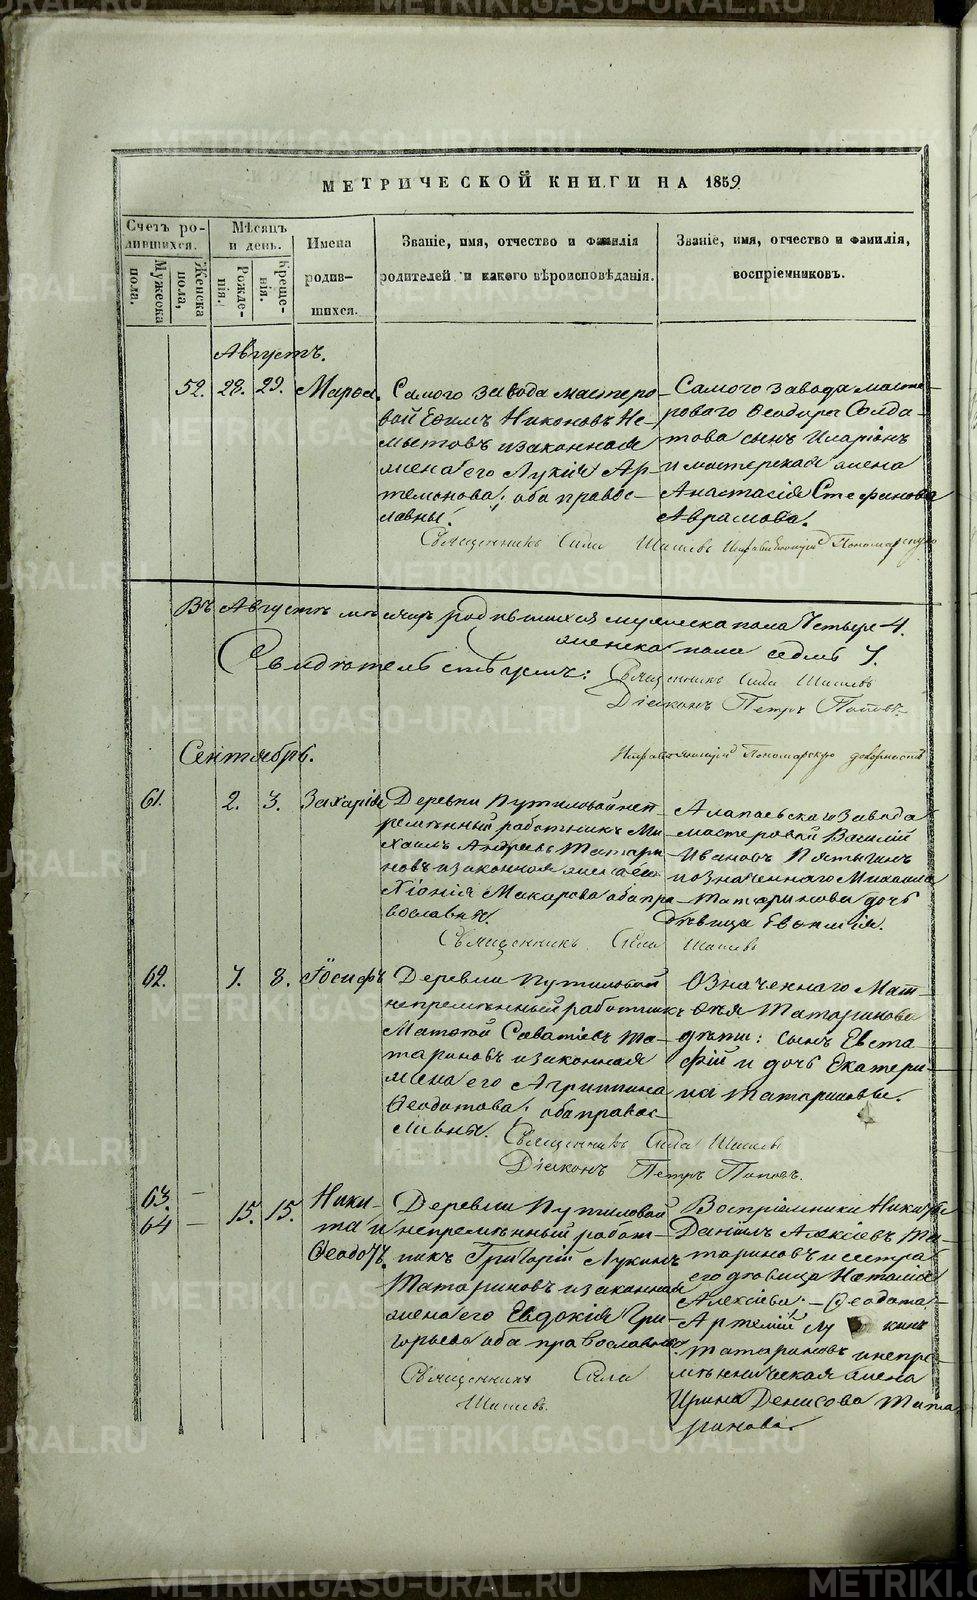 МЕТРИЧЕСКОЙ КНИГИ НА 1859
Счетъ ро-
дившихся.
Мужеска
пола.
Женска
пола,
Мѣсяцъ
и день.
Рожде-
нія.
Креще-
нія.
Имена
родив-
шихся.
Званіе, имя, отчество и фамилія
родителей и какого вѣроисповѣданія.
Званіе, имя, отчество и фамилія,
воспріемниковъ.
Августъ.
52. 28. 29. Марѳа.
Самого завода мастеро-
вой Ефимъ Никоновъ Не-
мытовъ и законная
жена его Лукія Ар-
темонова, оба правос-
лавны.
Самого завода масте-
роваго Ѳеодора Солда-
това сынъ Иларіонъ
и мастерская жена
Анастасія Стефанова
Аврамова.
Священникъ Сила Шишевъ Исправляющій Пономарскую
Въ Августѣ мѣсяцѣ родившихся мужеска пола четыре 4.
женска пола седмь 7.
Свидѣтельствуемъ:
Священникъ Сила Шишевъ
Діяконъ Петръ Поповъ
Исправляющій Пономарскую должность
Сентябрь.
61. 2. 3. Захарія
Деревни Путиловой неп-
ремѣнный работникъ Ми-
хаилъ Андреевъ Татари-
новъ и законная жена его
Хіонія Макарова оба пра-
вославны.
Алапаевскаго завода
мастеровой Василій
Ивановъ Пятыгинъ
и означеннаго Михаила
Татаринова дочь
дѣвица Евфимія.
Священникъ Сила Шишевъ
62. 7. 8. Іосифъ
Деревни Путиловой
непремѣнный работникъ
Матѳей Саватіевъ Та-
тариновъ и законная
жена его Агриппина
Ѳеодотова, оба правос-
лавны.
Означеннаго Мат-
ѳея Татаринова
дѣти: сынъ Евста-
фій и дочь Екатери-
на Татариновы.
Священникъ Сила Шишевъ
Діяконъ Петръ Поповъ.
63. –
64 – 15. 15.
Ники-
та и
Ѳеодотъ
Деревни Путиловой
непремѣнный работ-
никъ Григорій Лукинъ
Татариновъ и законная
жена его Евдокія Гри-
горьева оба православны.
Воспріемники Никиты
Даніилъ Алексіевъ Та-
тариновъ и сестра
его дѣвица Наталія
Алексіева; – Ѳеодота –
Артемій Лукинъ
Татариновъ и непре-
мѣнническая жена
Ирина Денисова Тата-
ринова.
Священникъ Сила
Шишевъ.
METRIKI.GASO-URAL.RU